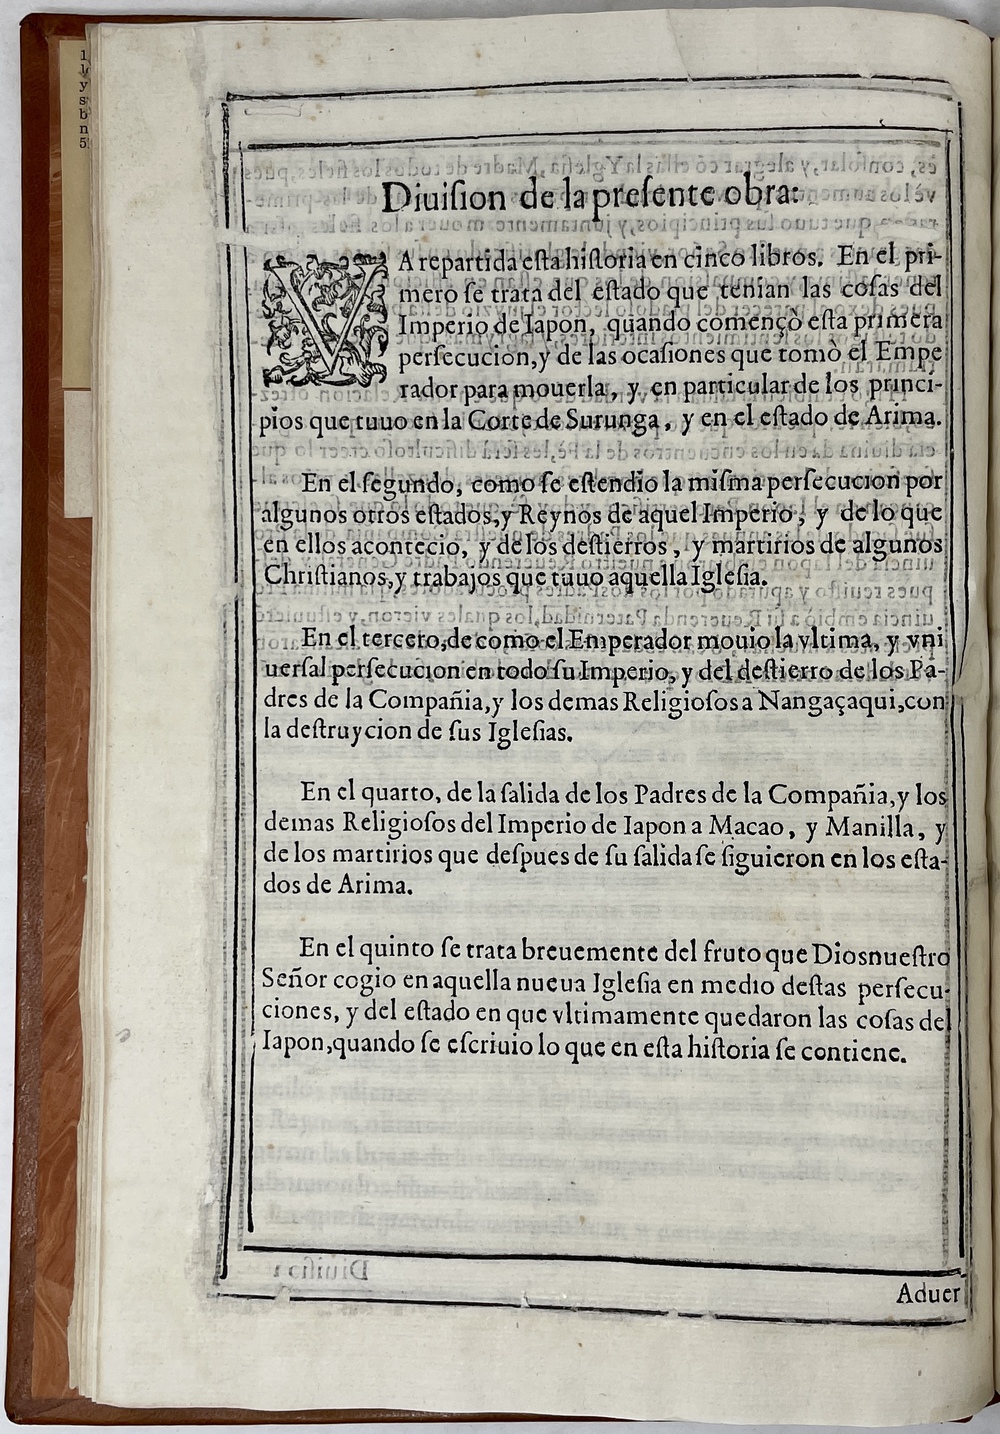 Diuiſion de la preſente obra:
VA repartida eſta hiſtoria en cinco libros. En el pri-
mero ſe trata del eſtado que tenian las coſas del
Imperio de Iapon, quando començò eſta primera
perſecucion, y de las ocaſiones que tomò el Empe
rador para mouerla, y en particular de los princi-
pios que tuuo en la Corte de Surunga, y en el eſtado de Arima.
En el ſegundo, como ſe eſtendio la miſma perſecucion por
algunos otros eſtados, y Reynos de aquel Imperio, y de lo que
en ellos acontecio, y de los deſtierros, y martirios de algunos
Chriſtianos, y trabajos que tuuo aquella Igleſia.
En el tercero, de como el Emperador mouio la vltima, y vni
uerſal perſecucion en todo ſu Imperio, y del deſtierro de los Pa-
dres de la Compañia, y los demas Religioſos a Nangaçaqui, con
la deſtruycion de ſus Igleſias.
En el quarto, de la ſalida de los Padres de la Compañia, y los
demas Religioſos del Imperio de Iapon a Macao, y Manilla, y
de los martirios que deſpues de ſu ſalida ſe ſiguieron en los eſta-
dos de Arima.
En el quinto ſe trata breuemente del fruto que Dios nueſtro
Señor cogio en aquella nueua Igleſia en medio deſtas perſecu-
ciones, y del eſtado en que vltimamente quedaron las coſas de
Iapon, quando ſe eſcriuio lo que en eſta hiſtoria ſe contiene.
Aduer